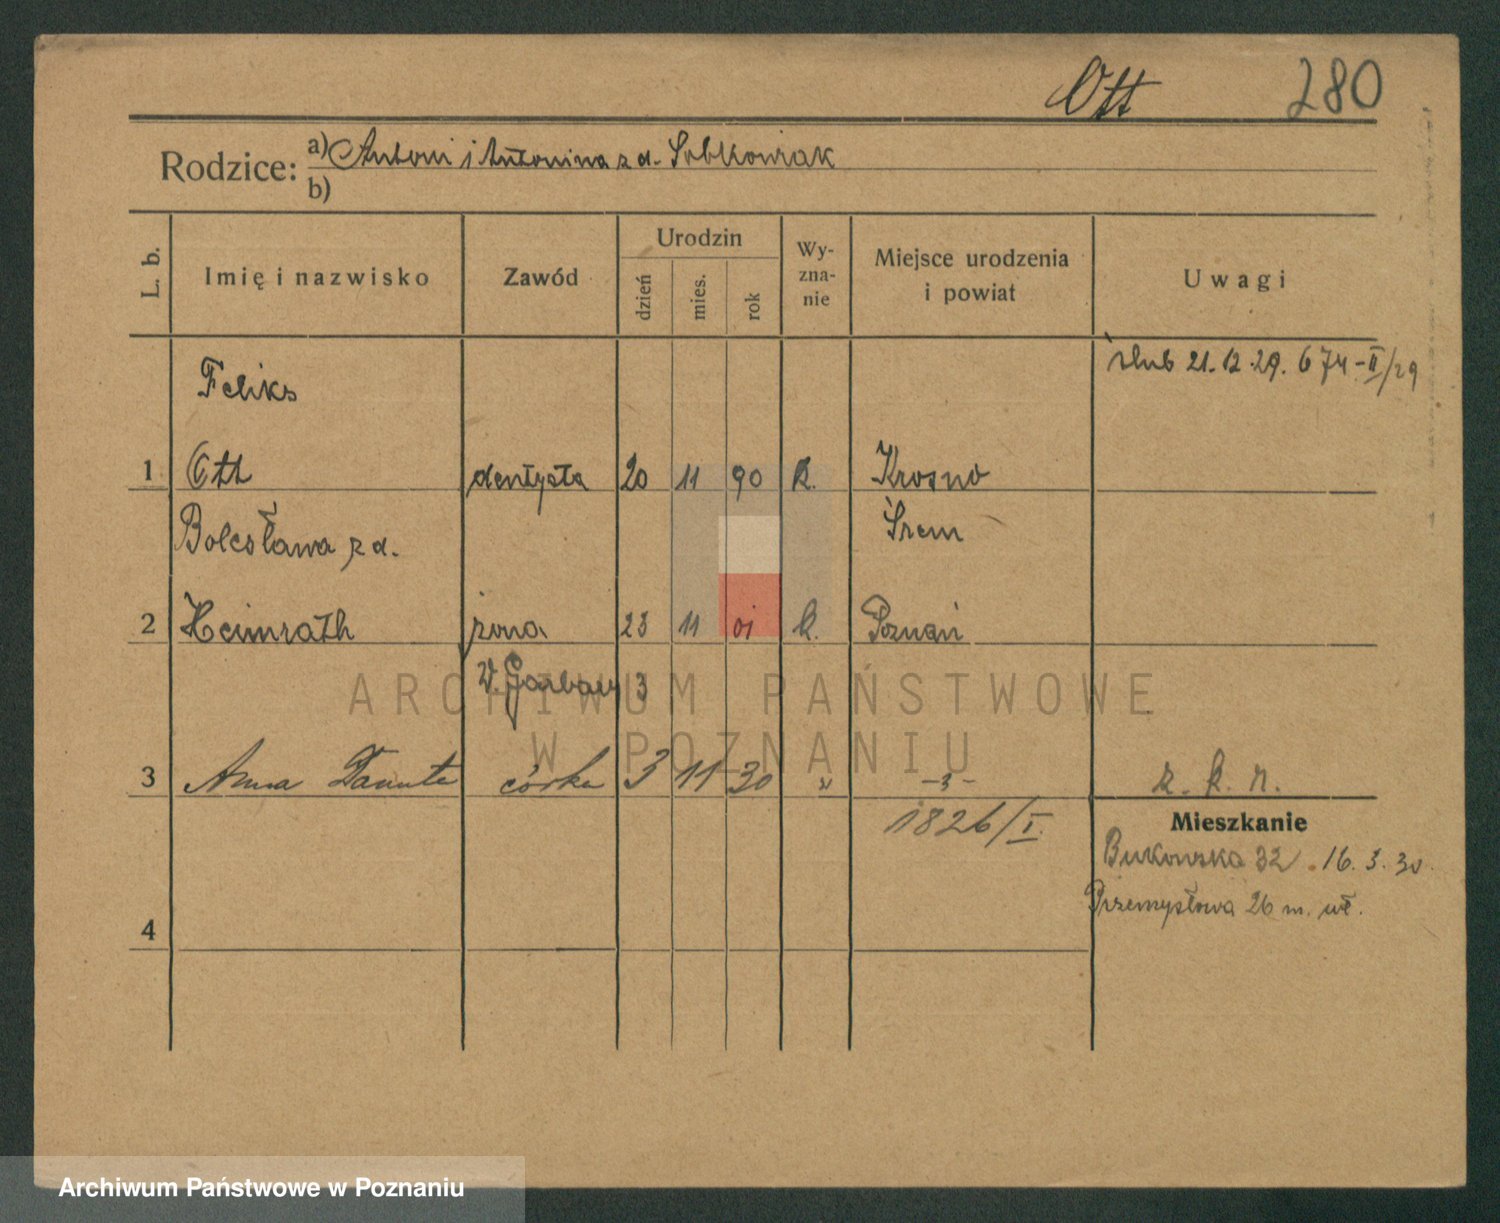 Ott 280
Rodzice: a) Antoni i Antonina z d. Sobkowiak
b)
L. b. Imię i nazwisko Zawód Urodzin dzień mies. rok Wy-zna-nie Miejsce urodzenia i powiat Uwagi
ślub 21.12.29. 674-II/29
Feliks
1 Ott dentysta 20 11 90 k. Krosno
Bolesława z d. Śrem
2 Heimrath żona 23 11 01 k. Poznań
W. Garbary 3
3 Anna Danuta córka 3 11 30 " -3- z. k. n.
1826/I.
Mieszkanie
Bukowska 32 16.3.30.
Przemysłowa 26 m. wł.
4
ARCHIWUM PAŃSTWOWE
W POZNANIU
Archiwum Państwowe w Poznaniu